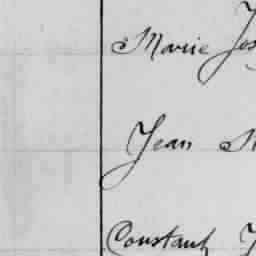 Marie Jos
Jean
Constant